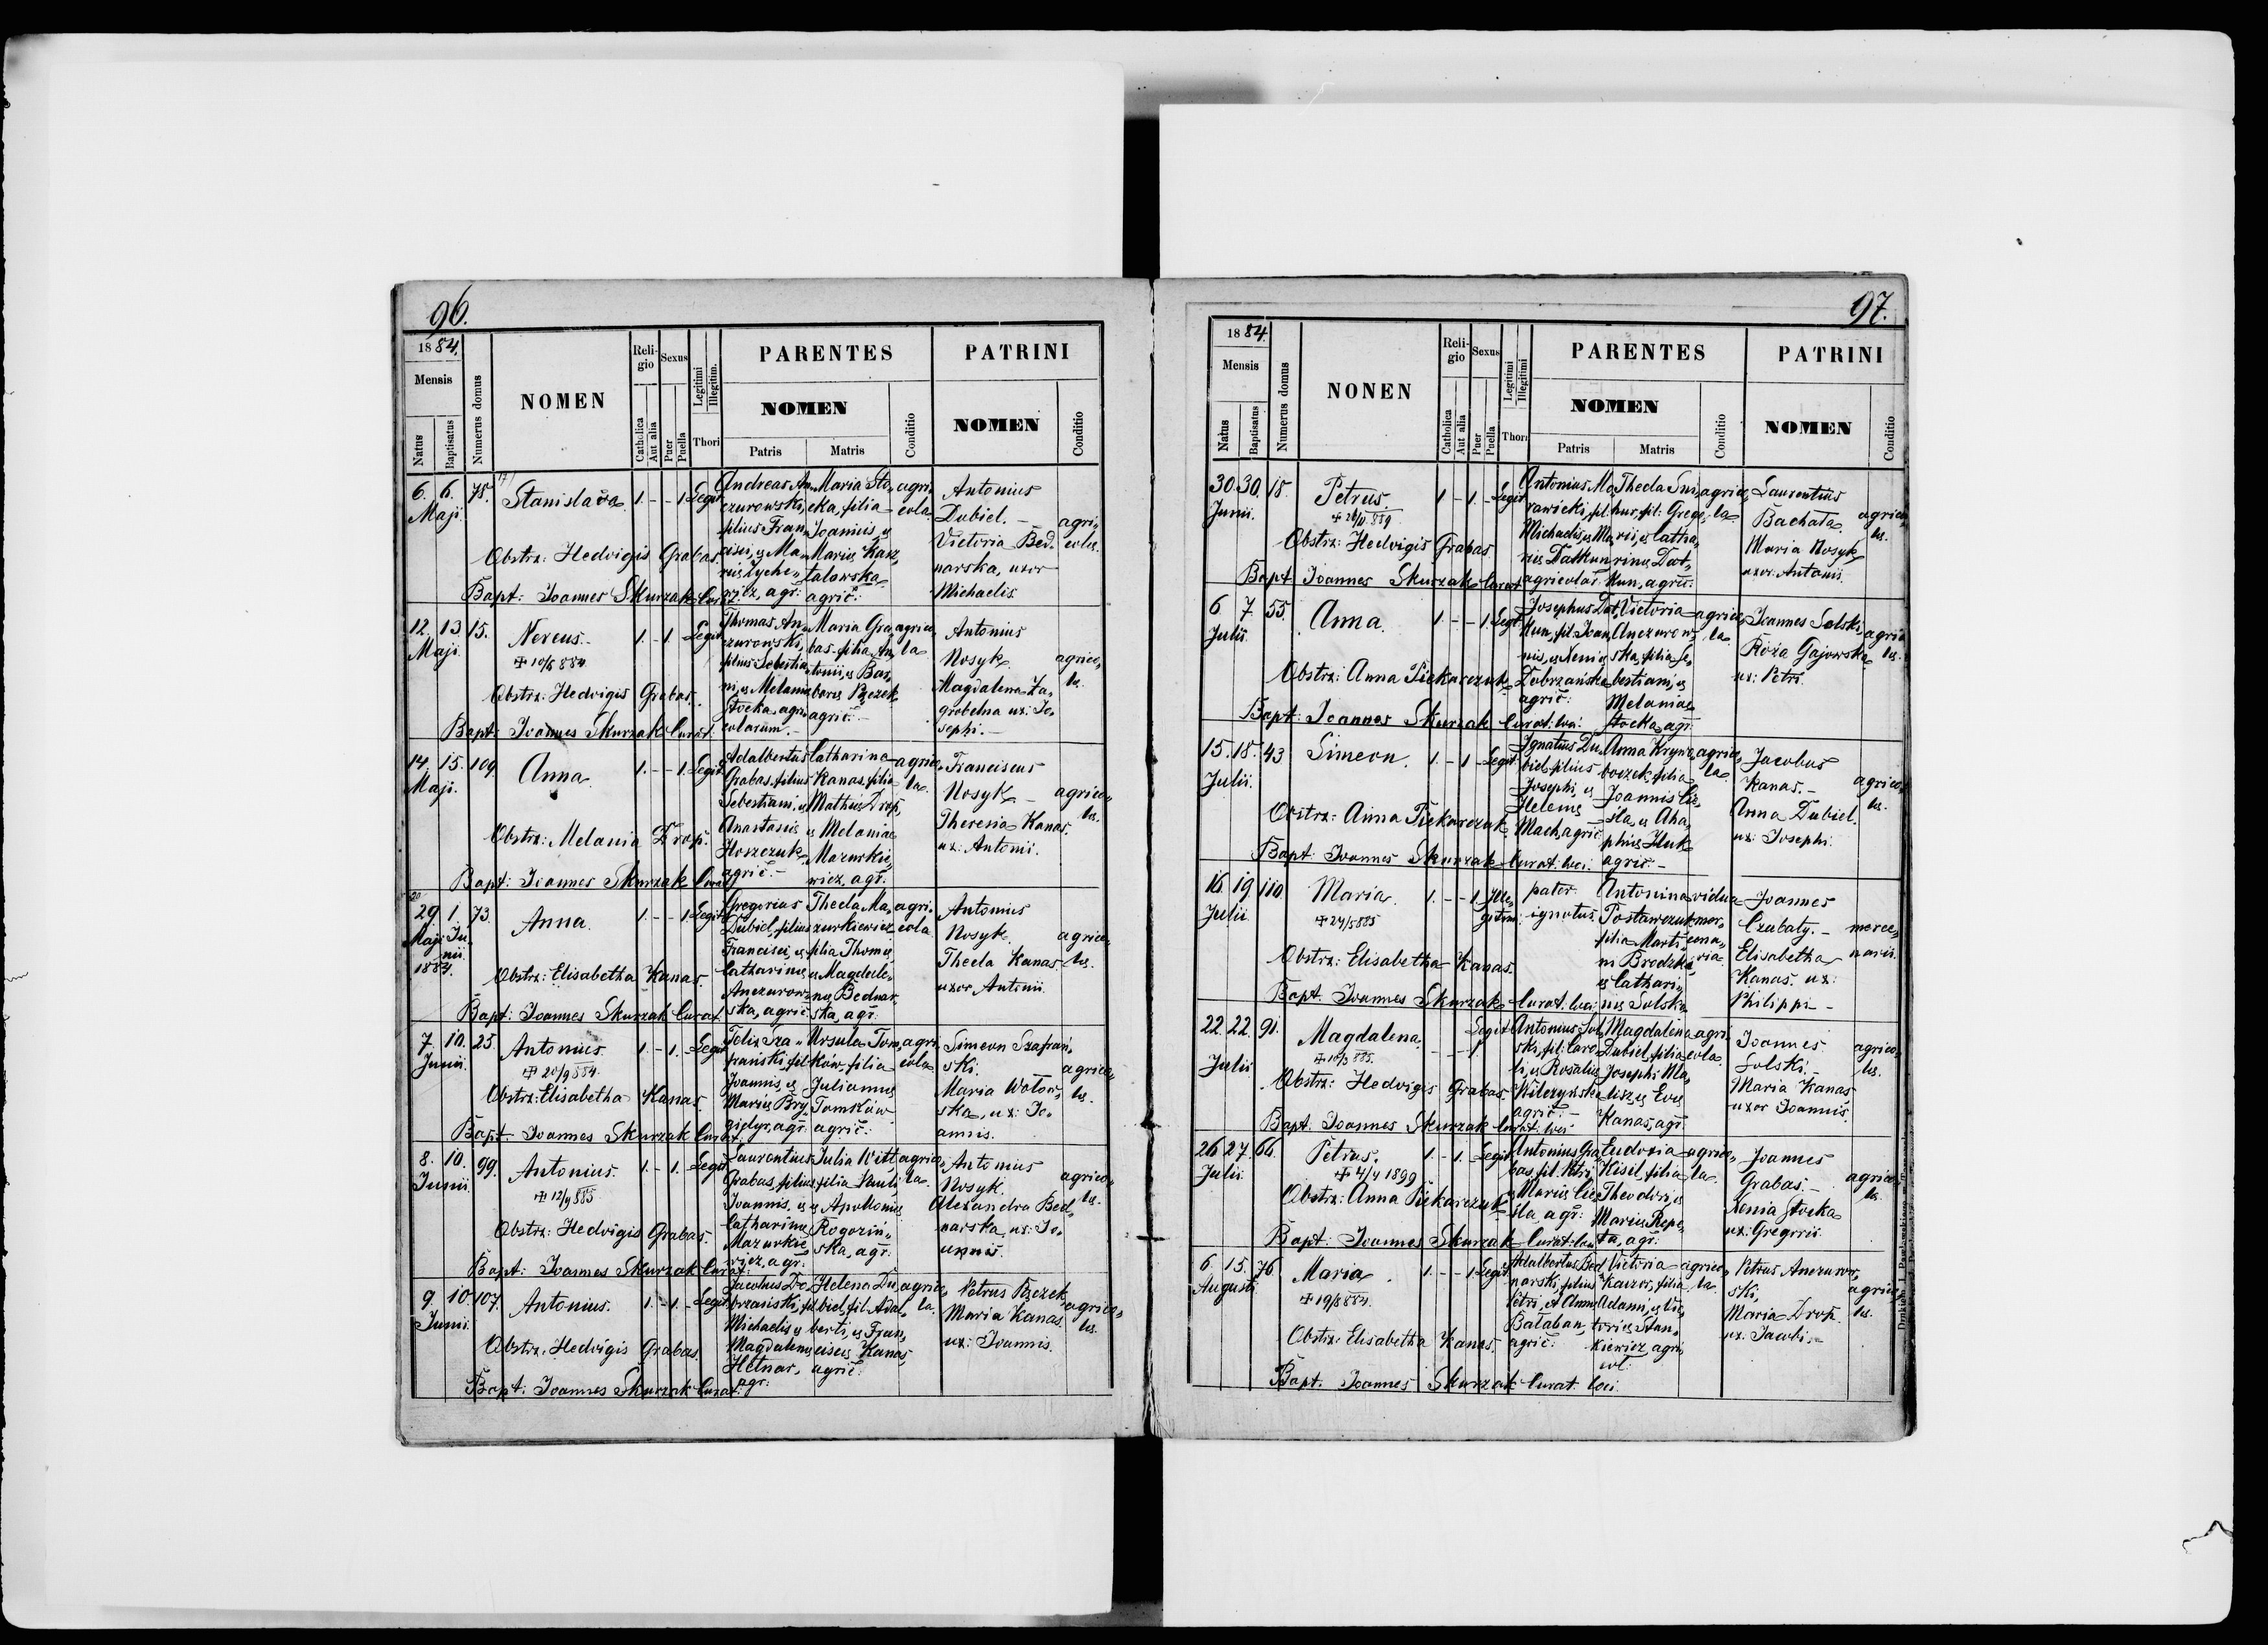 96.
1884.
Mensis
Natus
Baptisatus
Numerus domus
NOMEN
Religio
Catholica
Aut alia
Sexus
Puer
Puella
Legitimi
Illegitim.
Thori
PARENTES
NOMEN
Patris
Matris
Conditio
PATRINI
NOMEN
Conditio
6. 6. 78. Stanislava. 1. - - 1. Legit.
Maji
Andreas An„
czurowski,
filius Fran„
cisci, et Ma„
riæ Zyche„
wicz, agr:
Maria Sto„
cka, filia
Joannis, et
Mariæ Kasz„
talowska
agric:
agri„
cola
Antonius
Dubiel. -
Victoria Bed„
narska, uxor
Michaelis.
agri„
colæ.
Obstrx: Hedvigis Grabas.
Bapt: Joannes Skurzak Curat.
12. 13. 15. Nereus. 1. - 1. - Legit.
Maji
✠ 10/5 884
Thomas An„
czurowski,
filius Sebestia„
ni, et Melaniæ
Stocka, agri„
colarum. -
Maria Gra„
bas, filia An„
tonii, et Bar„
baræ Rzezek
agric: -
agrico„
la
Antonius
Nosyk.
Magdalena Za„
grobelna ux: Jo„
sephi. -
agrico„
læ.
Obstrx: Hedvigis Grabas.
Bapt: Joannes Skurzak Curat.
14. 15. 109. Anna 1. - - 1. Legit.
Maji.
Adalbertus
Grabas, filius
Sebestiani, et
Anastasiæ
Hoszczuk,
agric. -
Catharina
Kanas, filia
Mathiæ Drop,
et Melaniæ
Mazurkie„
wicz, agr.
agrico„
la
Franciscus
Nosyk -
Theresia Kanas.
ux: Antonii.
agrico„
læ.
Obstrx: Melania Drop.
Bapt: Joannes Skurzak Curat.
29 1. 73. Anna. 1. - - 1. Legit.
Maji Ju„
nii
1884.
Gregorius
Dubiel, filius
Francisci, et
Catharinæ
Anczurow„
ska, agric
Thecla Ma„
zurkiewicz
filia Thomæ,
et Magdale„
næ Bednar„
ska, agr:
agri„
cola
Antonius
Nosyk.
Thecla Kanas.
uxor Antonii.
agrico„
læ.
Obstrx: Elisabetha Kanas.
Bapt: Joannes Skurzak Curat.
7. 10. 25. Antonius. 1. - 1. - Legit
Junii
✠ 20/9 884.
Felix Sza„
frański, fil
Joannis, et
Mariæ Bry„
gidyr, agr.
Ursula Tom„
ków, filia
Julianna
Tomków
agric:
agri„
cola
Simeon Szafrań„
ski.
Maria Wołow„
ska, ux: Jo„
annis.
agrico„
læ.
Obstrx: Elisabetha Kanas.
Bapt: Joannes Skurzak Curat.
8. 10. 99. Antonius. 1. - 1. - Legit
Junii
✠ 12/9 885
Laurentius
Grabas, filius
Joannis, et
Catharinæ
Mazurkie„
wicz, agr:
Julia Witt
filia Pauli,
et Apolloniæ
Rogoziń„
ska, agr:
agrico„
la
Antonius
Nosyk.
Alexandra Bed„
narska, ux: Jo„
annis.
agrico„
læ.
Obstrx: Hedvigis Grabas.
Bapt: Joannes Skurzak Curat.
9. 10. 107. Antonius. 1. - 1. - Legit
Junii
Jacobus Do„
brzański, fil
Michaelis et
Magdalenæ
Hetnar,
agr:
Helena Du„
biel, fil. Adal„
berti, et Fran„
ciscæ Kanas,
agric:
agrico„
la
Petrus Rzezek,
Maria Kanas.
ux: Joannis.
agrico„
læ
Obstrx. Hedvigis Grabas.
Bapt: Joannes Skurzak Curat:
97.
1884.
Mensis
Natus
Baptisatus
Numerus domus
NONEN
Religio
Catholica
Aut alia
Sexus
Puer
Puella
Legitimi
Illegitimi
Thori
PARENTES
NOMEN
Patris
Matris
Conditio
PATRINI
NOMEN
Conditio
30. 30. 18. Petrus. 1 - 1 - Legit
Junii.
Antonius Mo„
rawiecki, fil.
Michaelis, et Ma„
riæ Datkun
agricolar.
Thecla Sni„
hur, fil: Grego„
rii, et Catha„
rinæ Dat„
kun, agric:
agrico„
la
Laurentius
Bachata
Maria Nosyk
uxor. Antonii.
agrico„
læ.
Obstrx: Hedvigis Grabas
Bapt Joannes Skurzak Curat
6 7. 55. Anna. 1. - - 1. Legt.
Julii
Josephus Dat„
kun, fil. Joan„
nis, et Xeniæ
Dobrzańska
agric:
Victoria
Anczurow„
ska, filia Se„
bestiani, et
Melaniæ
Stocka, agr
agrico„
la
Joannes Solski,
Róża Gajowska
ux: Petri.
agrico„
læ.
Obstrx: Anna Piekarczuk
Bapt: Joannes Skurzak Curat: loci:
15. 18. 43 Simeon. 1. - 1 - Legit
Julii.
Ignatius Du„
biel, filius
Josephi, et
Helenæ
Mach, agric
Anna Kryni„
boczek, filia
Joannis Cie„
śla, et Aha„
phiæ Huk
agric. -
agrico„
la
Jacobus
Kanas. -
Anna Dubiel.
ux: Josephi.
agrico„
læ.
Obstrx: Anna Piekarczuk
Bapt: Joannes Skurzak Curat. loci:
16. 19. 110. Maria. 1. - - 1. Ille„
gitim:
Julii
✠ 24/5 885
pater
ignotus.
Antonina
Postawczuk
filia Marti„
ni Brodzka
et Cathari„
næ Solska
vidua
mer„
cena„
ria.
Joannes
Czubaty. -
Elisabetha
Kanas. ux:
Philippi -
merce„
narii.
Obstrx: Elisabetha Kanas.
Bapt. Joannes Skurzak Curat. loci:
22. 22. 91. Magdalena. Legit
Julii
✠ 10/3 885.
Antonius Sol„
ski, fil: Caro„
li, et Rosaliæ
Wilczyńska
agric: -
Magdalena
Dubiel, filia
Josephi Ma„
lisz, et Evæ
Kanas, agr.
agri„
cola
Joannes
Solski. -
Maria Kanas,
uxor Joannis.
agrico„
læ.
Obstrx: Hedvigis Grabas.
Bapt. Joannes Skurzak Curat. loci
26. 27. 66. Petrus. 1. - 1. - Legit
Julii
✠ 4/4 1899
Antonius Gra„
bas, fil. Petri
et Mariæ Cie„
śla, agr:
Eudoxia
Kisil, filia
Theodori, et
Mariæ Repe„
ta, agr:
agrico„
la
Joannes
Grabas. -
Xenia Stocka
ux: Gregorii.
agrico„
læ.
Obstrx: Anna Piekarczuk
Bapt: Joannes Skurzak Curat. loci
6. 15. 76. Maria. 1. - - 1. Legit
Augusti
✠ 19/8 884.
Adalbertus Bed„
narski, filius
Petri, et Annæ
Bałaban,
agric:
Victoria
Kaczor, filia
Adami, et Vic„
toriæ Stan„
kiewicz, agri„
col:
agrico„
la.
Petrus Anczurow„
ski,
Maria Drop.
ux. Jacobi. -
agrico„
læ.
Obstrx: Elisabetha Kanas.
Bapt. Joannes Skurzak Curat. loci